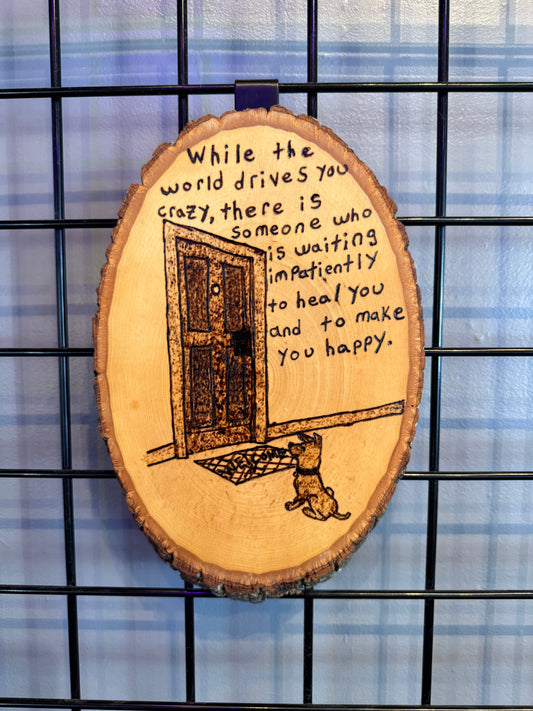 While the
world drives you
crazy, there is
someone who
is waiting
impatiently
to heal you
and to make
you happy.
WELCOME